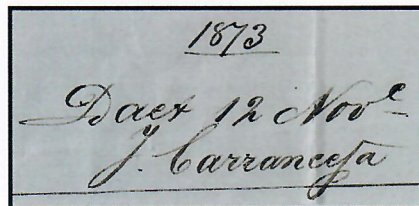 1873
Daet 12 Nov.e
J. Carranceja